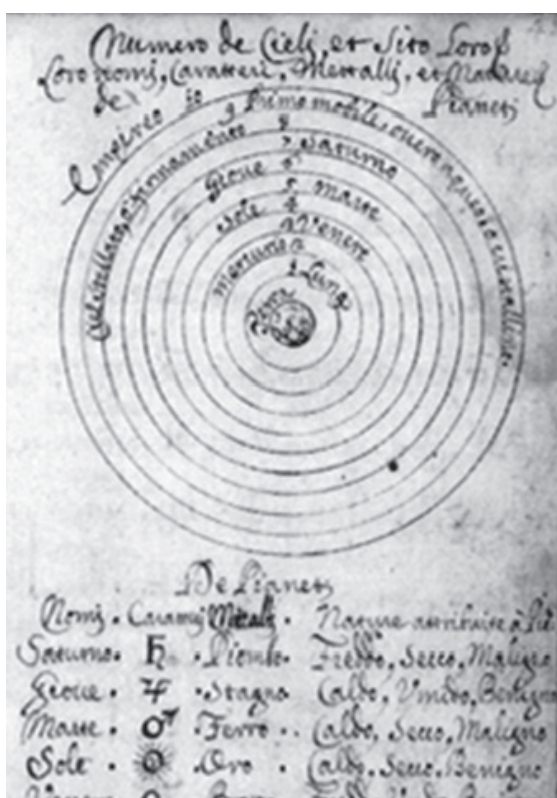 Numero de Cieli, et Sito Loro,
Loro nomi, Caratteri, Mettalli, et Nature
de Pianeti
Empireo 10
9 Primo mobile, overo aqueo o cristallino.
Cielo stellato, o firmamento 8
7 Saturno
Gioue 6
5 Marte
Sole 4
3 Venere
Mercurio 2
1 Luna
Terra
De Pianeti
Nomi. Caratteri Metali. Nature attribuite à Pia
Saturno. ♄ .Piombo. Freddo, Secco, Maligno
Gioue. ♃ .Stagno Caldo, Vmido, Benigno
Marte. ♂ .Ferro.. Caldo, Secco, Maligno
Sole. ☉ .Oro. Caldo, Secco, Benigno